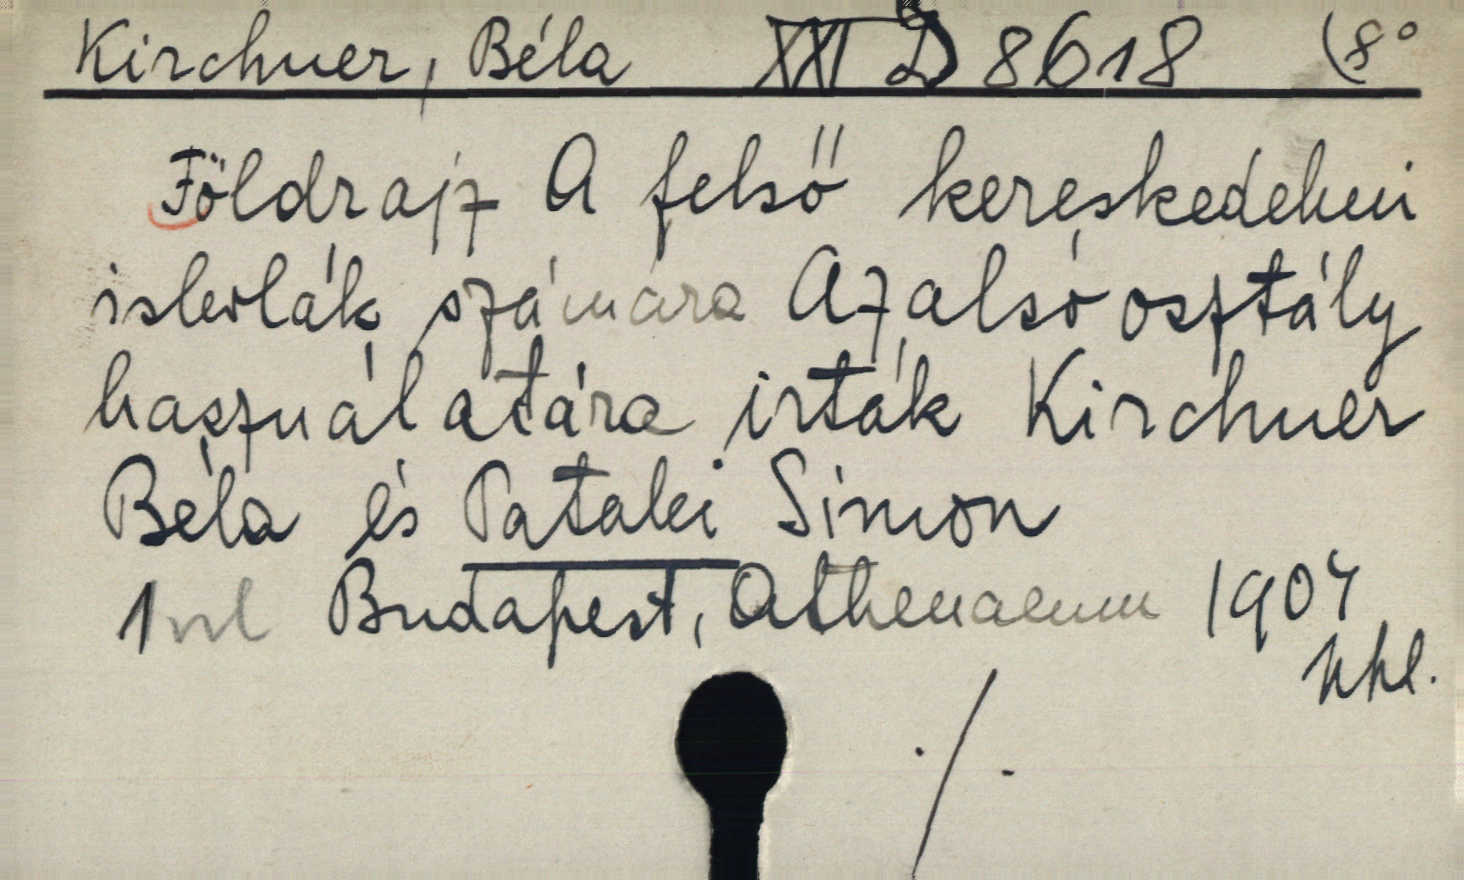 Kirchner, Béla XXI D 8618 (8°
Földrajz A felső kereskedelmi
iskolák számára Az alsó osztály
használatára irták Kirchner
Béla és Patalei Simon
1 vol Budapest, Athenaeum 1904
./.